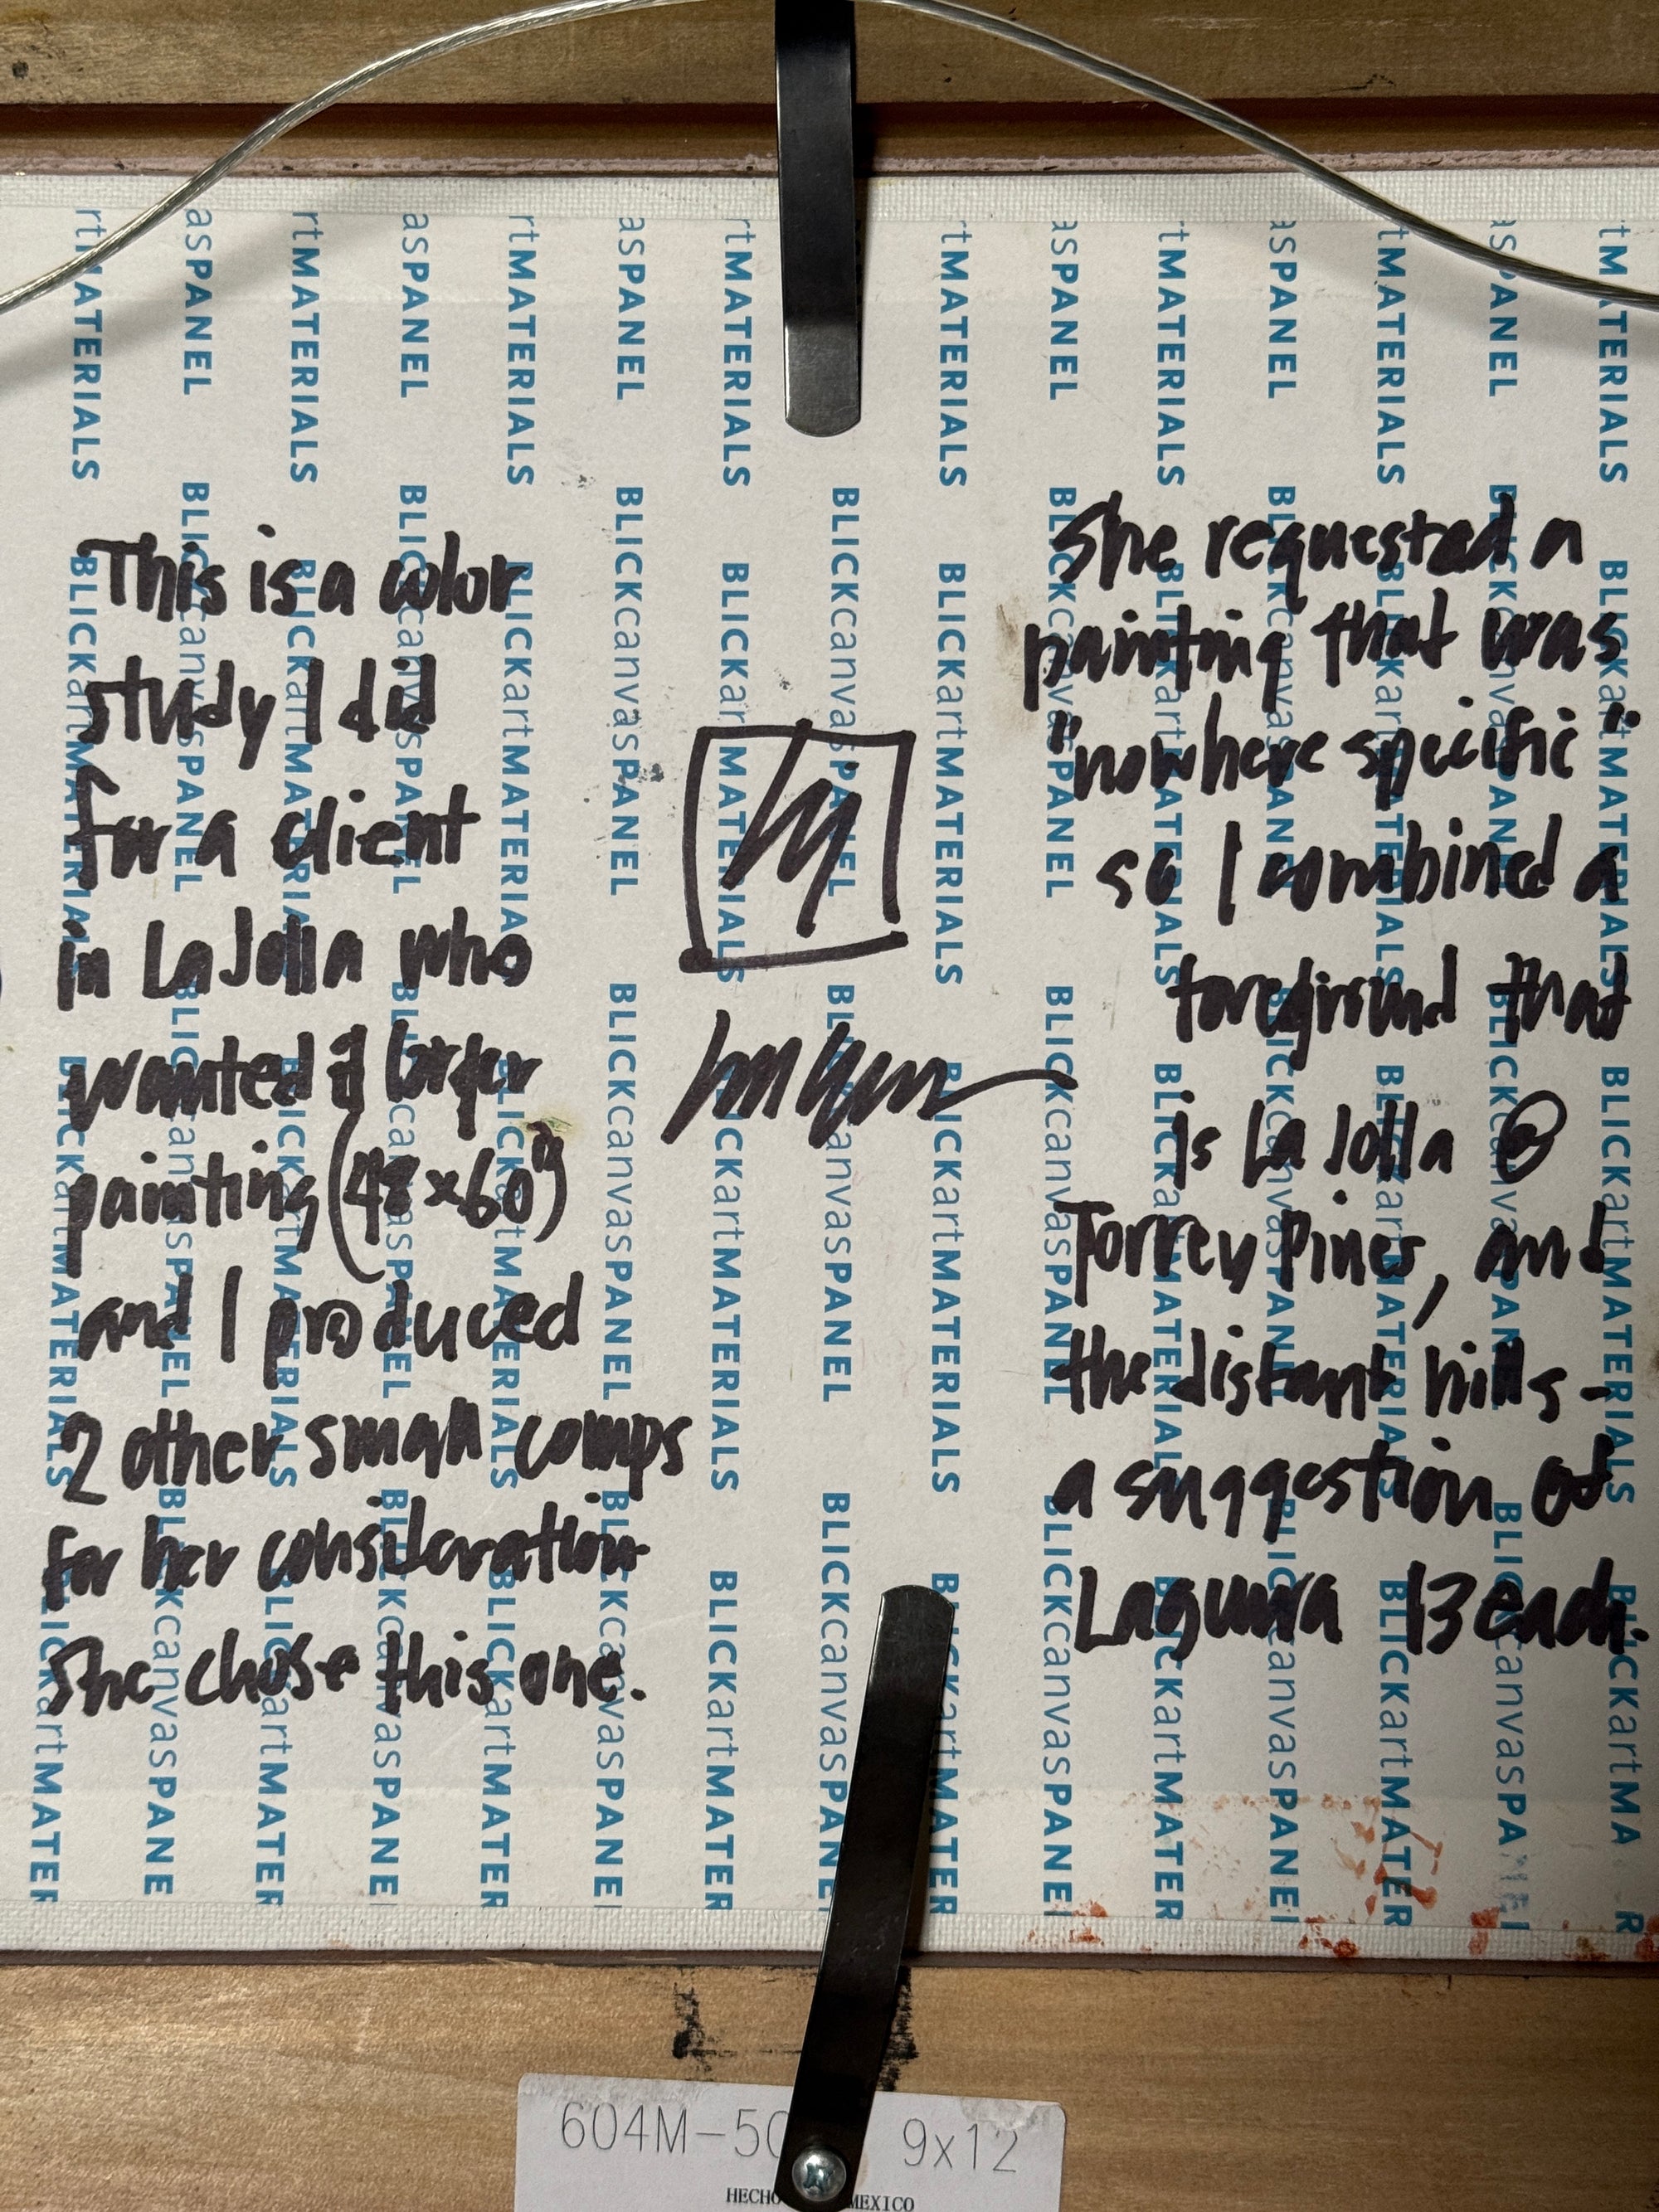 This is a color
study I did
for a client
in La Jolla who
wanted a larger
painting (48 x 60")
and I produced
2 other small comps
for her consideration
She chose this one.
She requested a
painting that was
"nowhere specific"
so I combined a
foreground that
is La Jolla @
Torrey Pines, and
the distant hills -
a suggestion of
Laguna Beach.
BLICKartMATERIALS
BLICKcanvasPANEL
604M-50 9x12
HECHO MEXICO